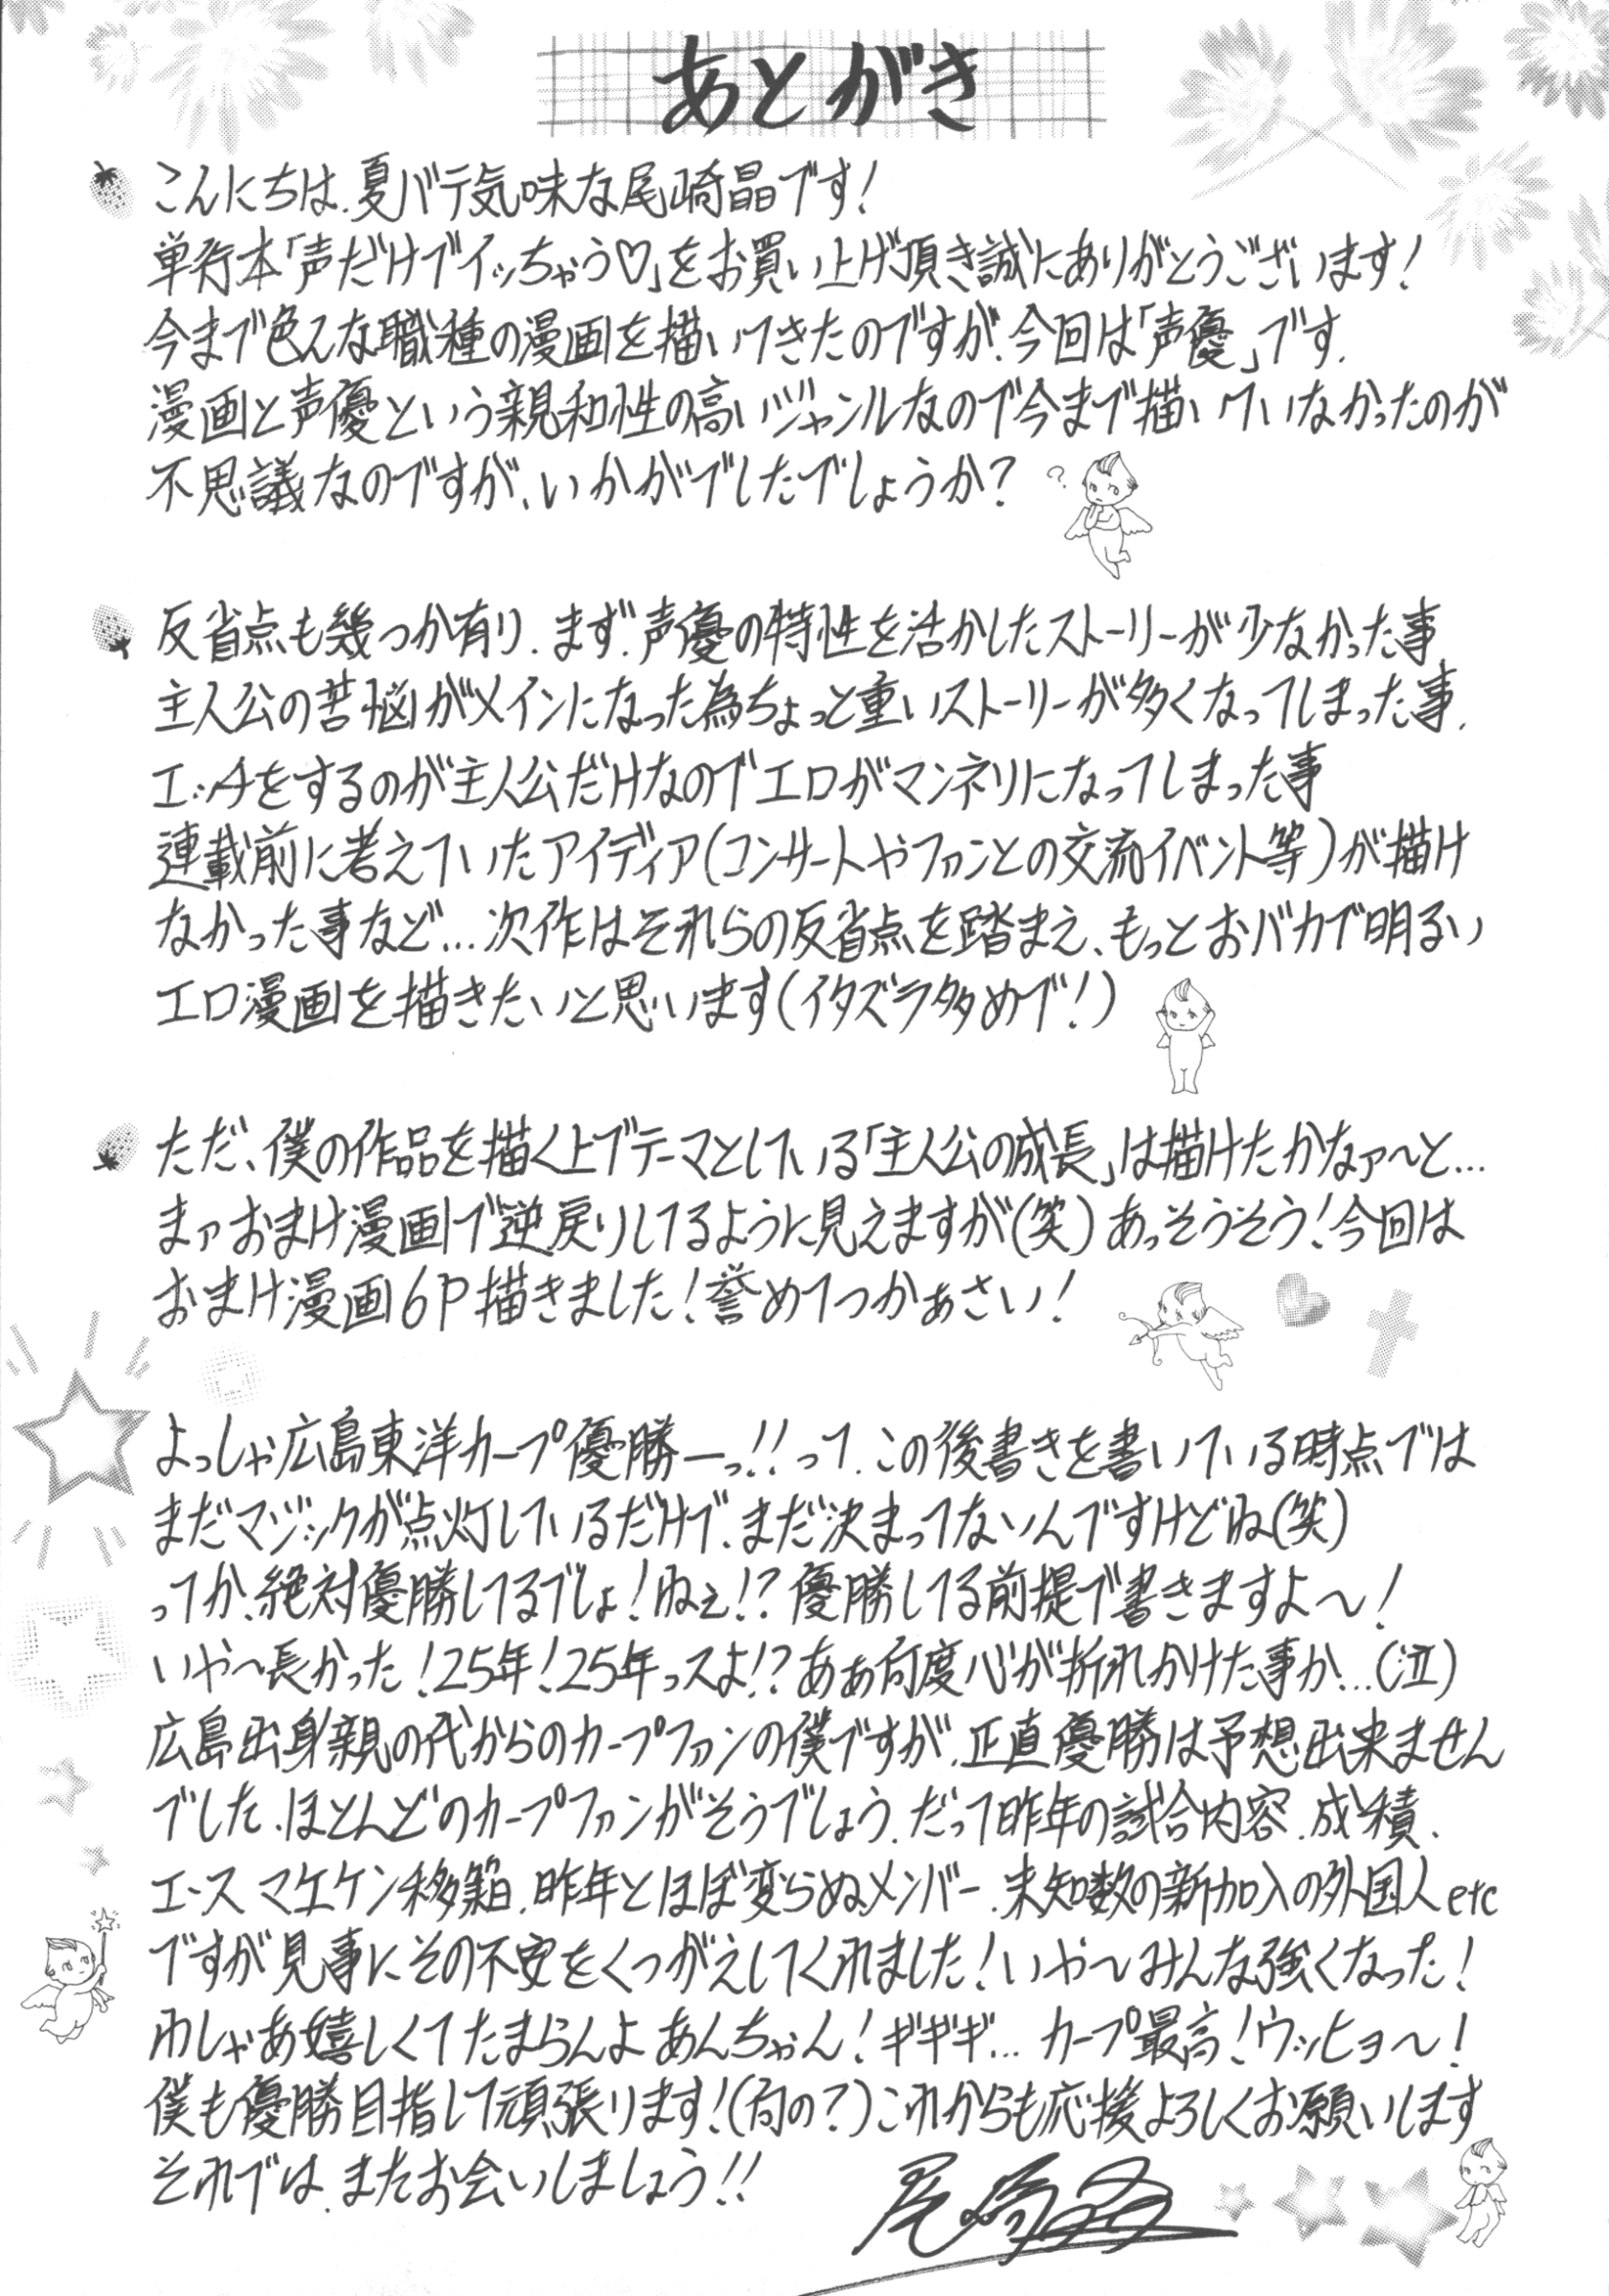 あとがき
こんにちは、夏バテ気味な尾崎晶です!
単行本「声だけでイッちゃう♡」をお買い上げ頂き誠にありがとうございます!
今まで色んな職種の漫画を描いてきたのですが、今回は「声優」です。
漫画と声優という親和性の高いジャンルなので今まで描いていなかったのが
不思議なのですが、いかがでしたでしょうか?
?
反省点も幾つか有り、まず、声優の特性を活かしたストーリーが少なかった事
主人公の苦悩がメインになった為ちょっと重いストーリーが多くなってしまった事、
エッチをするのが主人公だけなのでエロがマンネリになってしまった事
連載前に考えていたアイディア(コンサートやファンとの交流イベント等)が描け
なかった事など…次作はそれらの反省点を踏まえ、もっとおバカで明るい
エロ漫画を描きたいと思います(イタズラ多めで!)
ただ、僕の作品を描く上でテーマとしている「主人公の成長」は描けたかなァ〜と…
まァおまけ漫画で逆戻りしてるように見えますが(笑)あっそうそう!今回は
おまけ漫画6P描きました!誉めてつかぁさい!
よっしゃ広島東洋カープ優勝ーっ!!って、この後書きを書いている時点では
まだマジックが点灯しているだけで、まだ決まってないんですけどね(笑)
ってか、絶対優勝してるでしょ!ねぇ!?優勝してる前提で書きますよ〜!
いや〜長かった!25年!25年っスよ!?あぁ何度心が折れかけた事か…(泣)
広島出身親の代からのカープファンの僕ですが、正直優勝は予想出来ません
でした、ほとんどのカープファンがそうでしょう、だって昨年の試合内容、成積、
エース マエケン移籍、昨年とほぼ変らぬメンバー、未知数の新加入の外国人etc
ですが見事にその不安をくつがえしてくれました!いや〜みんな強くなった!
わしゃあ嬉しくてたまらんよあんちゃん!ギギギ…カープ最高!ウッヒョ〜!
僕も優勝目指して頑張ります!(何の?)これからも応援よろしくお願いします
それでは、またお会いしましょう!!
尾崎晶